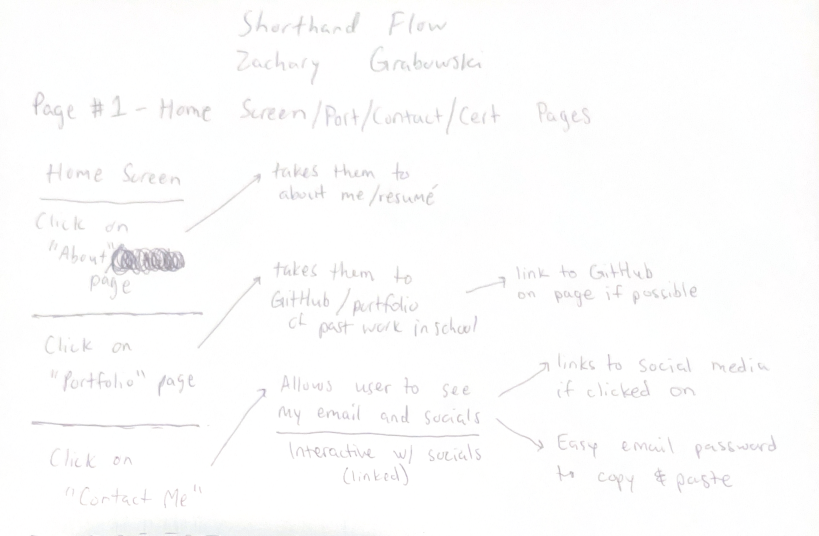 Shorthand Flow
Zachary Grabowski
Page #1 - Home Screen/Port/Contact/Cert Pages
Home Screen
Click on
"About"
page
takes them to
about me/resumé
Click on
"Portfolio" page
takes them to
GitHub/portfolio
of past work in school
link to GitHub
on page if possible
Click on
"Contact Me"
Allows user to see
my email and socials
Interactive w/ socials
(linked)
links to social media
if clicked on
Easy email password
to copy & paste